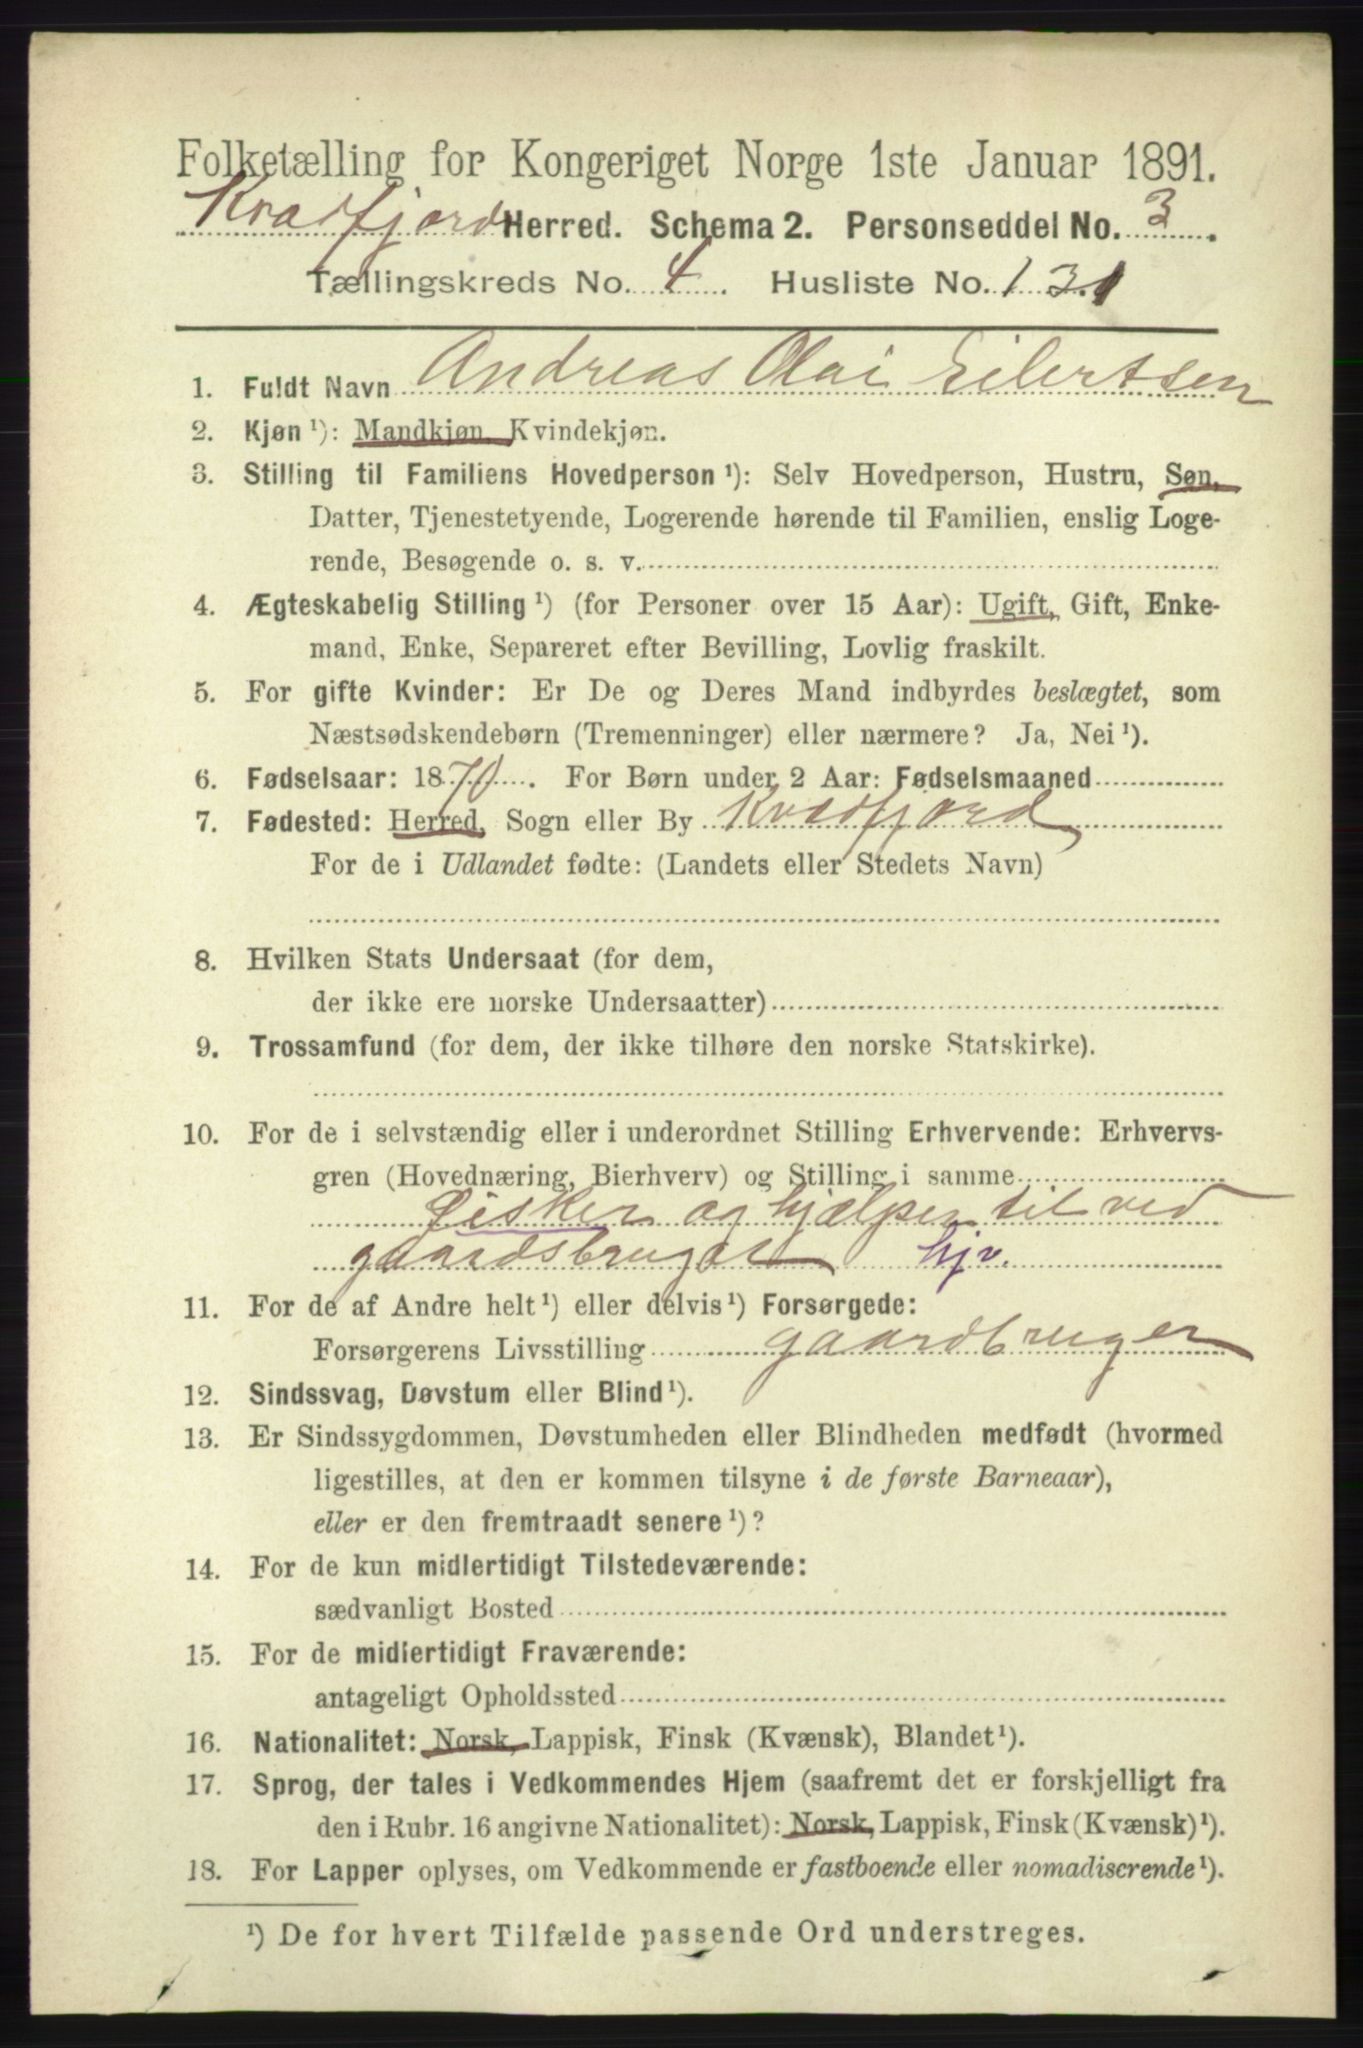 Folketælling for Kongeriget Norge 1ste Januar 1891.
Kvædfjord Herred. Schema 2. Personseddel No. 3.
Tællingskreds No. 4. Husliste No. 131
1. Fuldt Navn Andreas Olai Eilertsen
2. Kjøn¹): Mandkjøn, Kvindekjøn.
3. Stilling til Familiens Hovedperson¹): Selv Hovedperson, Hustru, Søn,
Datter, Tjenestetyende, Logerende hørende til Familien, enslig Loge-
rende, Besøgende o. s. v.
4. Ægteskabelig Stilling¹) (for Personer over 15 Aar): Ugift, Gift, Enke-
mand, Enke, Separeret efter Bevilling, Lovlig fraskilt.
5. For gifte Kvinder: Er De og Deres Mand indbyrdes beslægtet, som
Næstsødskendebørn (Tremenninger) eller nærmere? Ja, Nei¹).
6. Fødselsaar: 1870. For Børn under 2 Aar: Fødselsmaaned
7. Fødested: Herred, Sogn eller By Kvædfjord
For de i Udlandet fødte: (Landets eller Stedets Navn)
8. Hvilken Stats Undersaat (for dem,
der ikke ere norske Undersaatter)
9. Trossamfund (for dem, der ikke tilhøre den norske Statskirke).
10. For de i selvstændig eller i underordnet Stilling Erhvervende: Erhvervs-
gren (Hovednæring, Bierhverv) og Stilling i samme
Fisker og hjælper til ved
gaardsbruget hjv.
11. For de af Andre helt¹) eller delvis¹) Forsørgede:
Forsørgerens Livsstilling gaardbruger
12. Sindssvag, Døvstum eller Blind¹).
13. Er Sindssygdommen, Døvstumheden eller Blindheden medfødt (hvormed
ligestilles, at den er kommen tilsyne i de første Barneaar),
eller er den fremtraadt senere¹)?
14. For de kun midlertidigt Tilstedeværende:
sædvanligt Bosted
15. For de midlertidigt Fraværende:
antageligt Opholdssted
16. Nationalitet: Norsk, Lappisk, Finsk (Kvænsk), Blandet¹).
17. Sprog, der tales i Vedkommendes Hjem (saafremt det er forskjelligt fra
den i Rubr. 16 angivne Nationalitet): Norsk, Lappisk, Finsk (Kvænsk)¹).
18. For Lapper oplyses, om Vedkommende er fastboende eller nomadiserende¹).
¹) De for hvert Tilfælde passende Ord understreges.